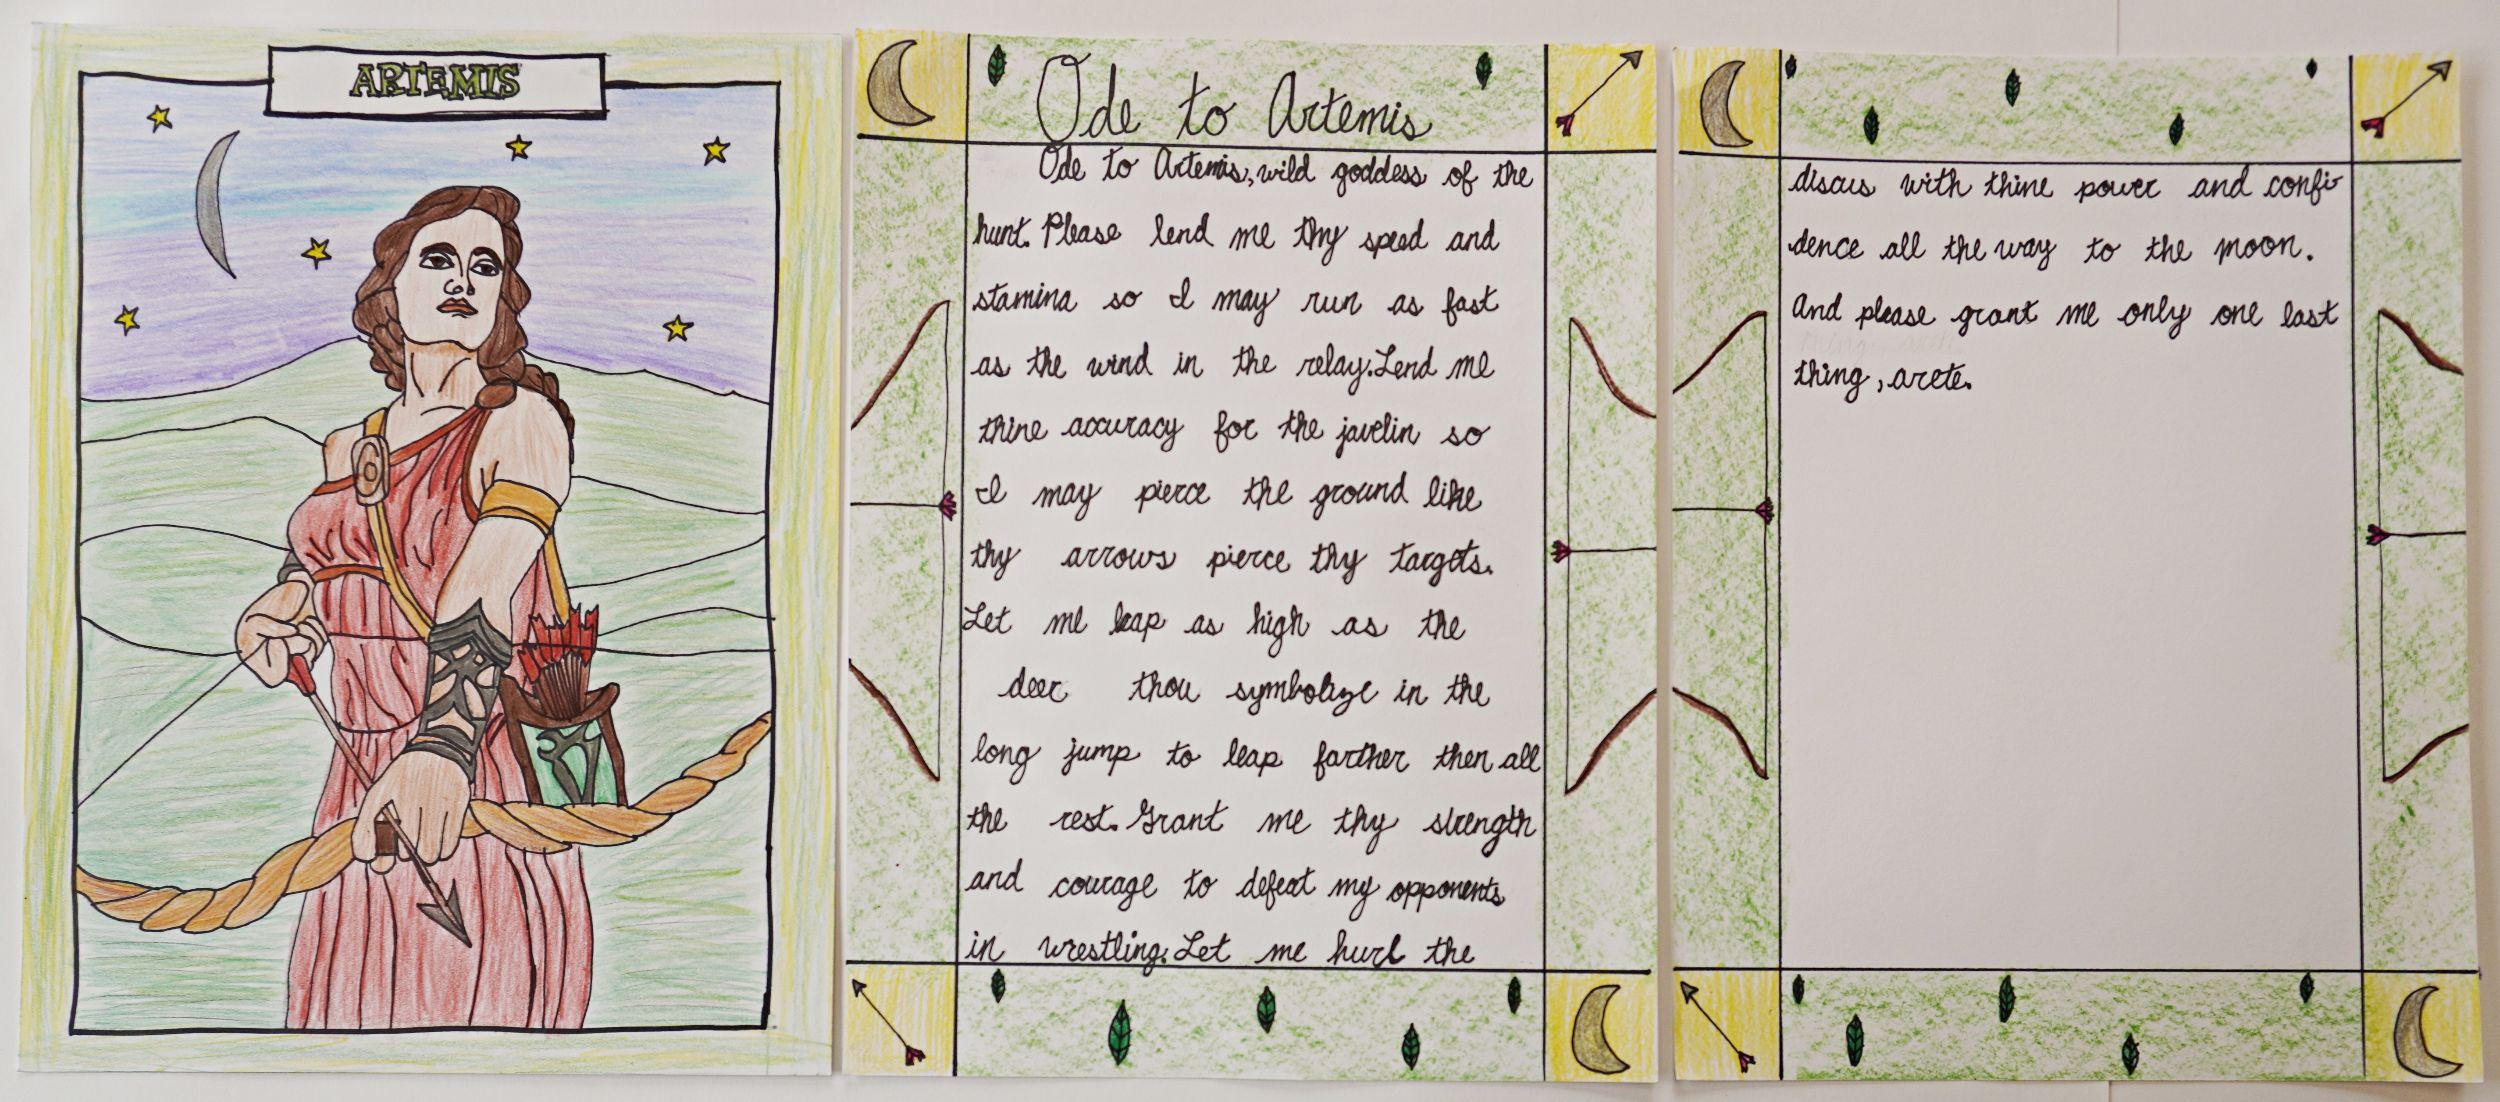 ARTEMIS
Ode to Artemis
Ode to Artemis, wild goddess of the
hunt. Please lend me thy speed and
stamina so I may run as fast
as the wind in the relay. Lend me
thine accuracy for the javelin so
I may pierce the ground like
thy arrows pierce thy targets.
Let me leap as high as the
deer thou symbolize in the
long jump to leap farther then all
the rest. Grant me thy strength
and courage to defeat my opponents
in wrestling. Let me hurl the
discus with thine power and confi-
dence all the way to the moon.
And please grant me only one last
thing, arete.